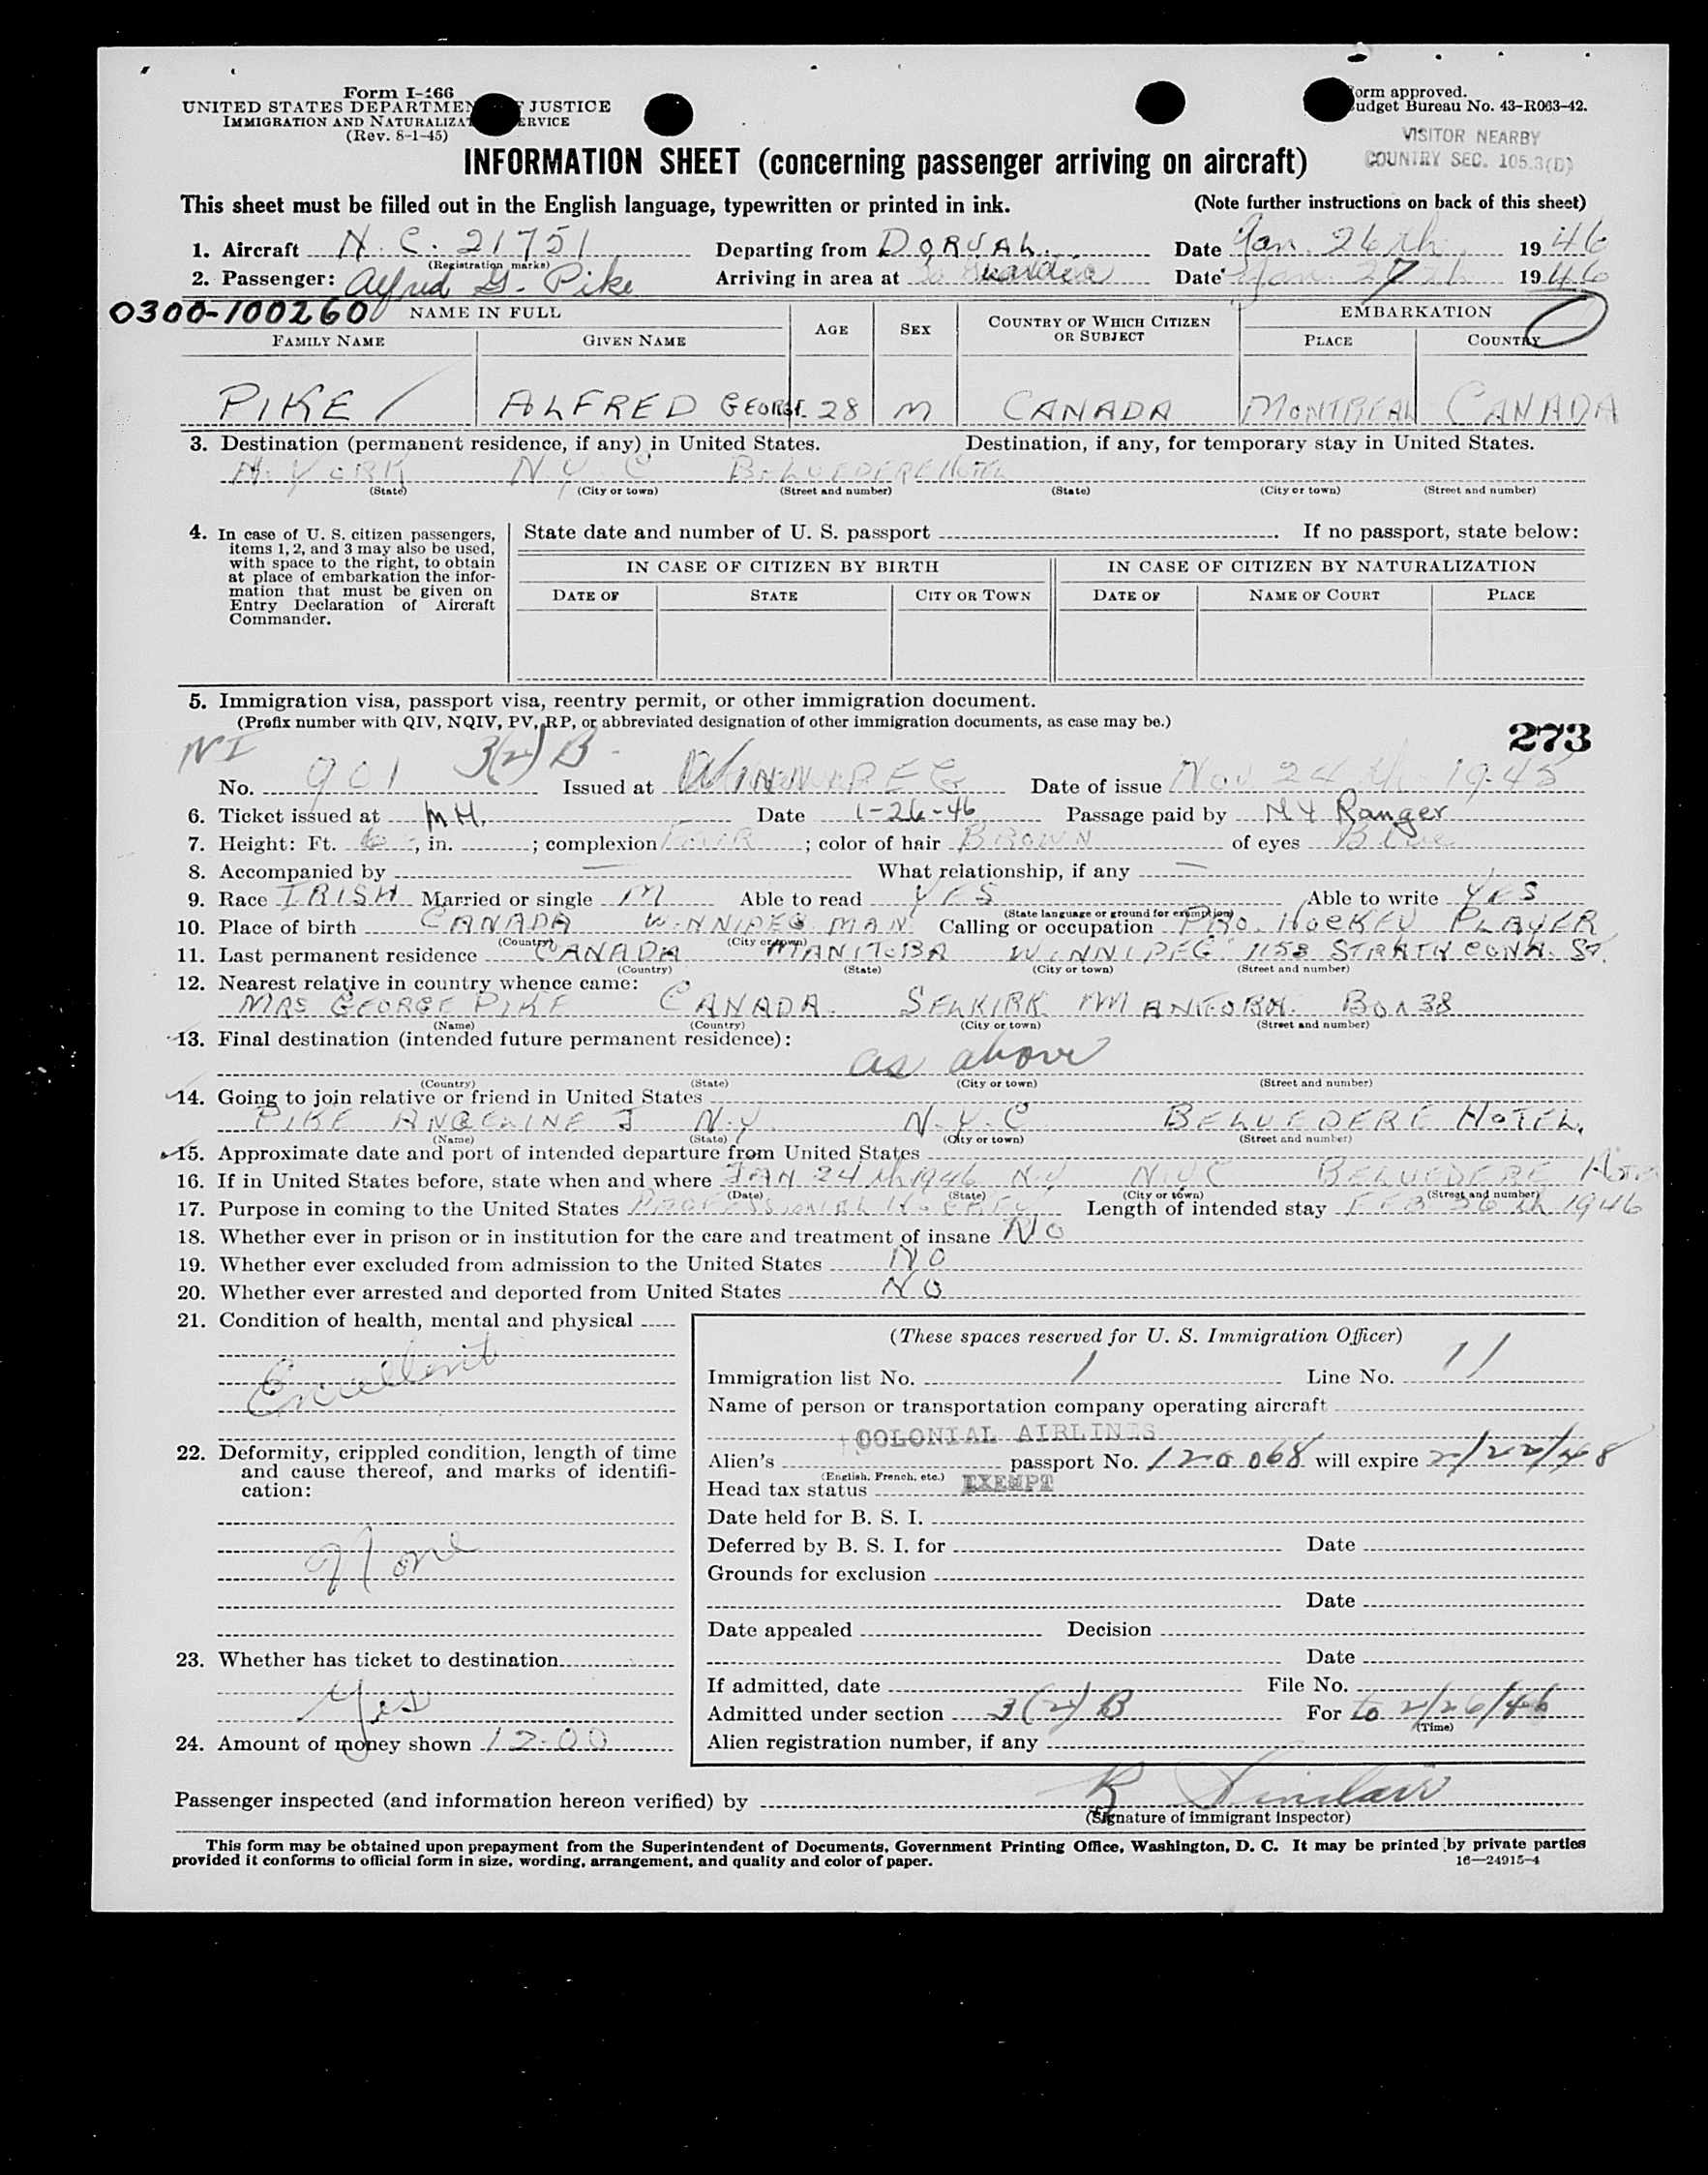 Form I-466
UNITED STATES DEPARTMENT OF JUSTICE
IMMIGRATION AND NATURALIZATION SERVICE
(Rev. 8-1-45)
Form approved.
Budget Bureau No. 43-R063-42.
VISITOR NEARBY
COUNTRY SEC. 105.3(D)
INFORMATION SHEET (concerning passenger arriving on aircraft)
This sheet must be filled out in the English language, typewritten or printed in ink. (Note further instructions on back of this sheet)
1. Aircraft N.C. 21751 Departing from DORVAL. Date Jan. 26th 1946
(Registration marks)
2. Passenger: Alfred G. Pike Arriving in area at La Guardia Date Jan. 27th 1946
0300-100260
NAME IN FULL AGE SEX COUNTRY OF WHICH CITIZEN OR SUBJECT EMBARKATION
FAMILY NAME GIVEN NAME PLACE COUNTRY
PIKE ALFRED GEORGE 28 M CANADA MONTREAL CANADA
3. Destination (permanent residence, if any) in United States. Destination, if any, for temporary stay in United States.
N. YORK N.Y.C BELVEDERE HOTEL
(State) (City or town) (Street and number) (State) (City or town) (Street and number)
4. In case of U. S. citizen passengers, items 1, 2, and 3 may also be used, with space to the right, to obtain at place of embarkation the information that must be given on Entry Declaration of Aircraft Commander.
State date and number of U. S. passport . If no passport, state below:
IN CASE OF CITIZEN BY BIRTH IN CASE OF CITIZEN BY NATURALIZATION
DATE OF STATE CITY OR TOWN DATE OF NAME OF COURT PLACE
5. Immigration visa, passport visa, reentry permit, or other immigration document.
(Prefix number with QIV, NQIV, PV, RP, or abbreviated designation of other immigration documents, as case may be.)
273
NI 3(2) B
No. 901 Issued at WINNIPEG Date of issue Nov 24th 1945
6. Ticket issued at MH. Date 1-26-46 Passage paid by NY Ranger
7. Height: Ft. 6, in. ; complexion FAIR ; color of hair BROWN of eyes Blue
8. Accompanied by — What relationship, if any —
9. Race IRISH Married or single M Able to read YES Able to write YES
(State language or ground for exemption)
10. Place of birth CANADA WINNIPEG MAN Calling or occupation PRO. HOCKEY PLAYER
(Country) (City or town)
11. Last permanent residence CANADA MANITOBA WINNIPEG 1153 STRATHCONA. ST.
(Country) (State) (City or town) (Street and number)
12. Nearest relative in country whence came:
MRS GEORGE PIKE CANADA. SELKIRK MANITOBA. BOX 38
(Name) (Country) (City or town) (Street and number)
13. Final destination (intended future permanent residence):
as above
(Country) (State) (City or town) (Street and number)
14. Going to join relative or friend in United States
PIKE ANGELINE J N.Y. N.Y.C BELVEDERE HOTEL.
(Name) (State) (City or town) (Street and number)
15. Approximate date and port of intended departure from United States
16. If in United States before, state when and where JAN 24th 1946 N.Y N.Y.C BELVEDERE HOTEL
(Date) (State) (City or town) (Street and number)
17. Purpose in coming to the United States PROFESSIONAL HOCKEY Length of intended stay FEB 26th 1946
18. Whether ever in prison or in institution for the care and treatment of insane NO
19. Whether ever excluded from admission to the United States NO
20. Whether ever arrested and deported from United States NO
21. Condition of health, mental and physical
Excellent
22. Deformity, crippled condition, length of time and cause thereof, and marks of identification:
None
23. Whether has ticket to destination
Yes
24. Amount of money shown 12.00
(These spaces reserved for U. S. Immigration Officer)
Immigration list No. 1 Line No. 11
Name of person or transportation company operating aircraft
COLONIAL AIRLINES
Alien's passport No. 120068 will expire 2/22/48
(English, French, etc.)
Head tax status EXEMPT
Date held for B. S. I.
Deferred by B. S. I. for Date
Grounds for exclusion
Date
Date appealed Decision
Date
If admitted, date File No.
Admitted under section 3(2) B For to 2/26/46
(Time)
Alien registration number, if any
Passenger inspected (and information hereon verified) by R Sinclair
(Signature of immigrant inspector)
This form may be obtained upon prepayment from the Superintendent of Documents, Government Printing Office, Washington, D. C. It may be printed by private parties
provided it conforms to official form in size, wording, arrangement, and quality and color of paper. 16—24915-4